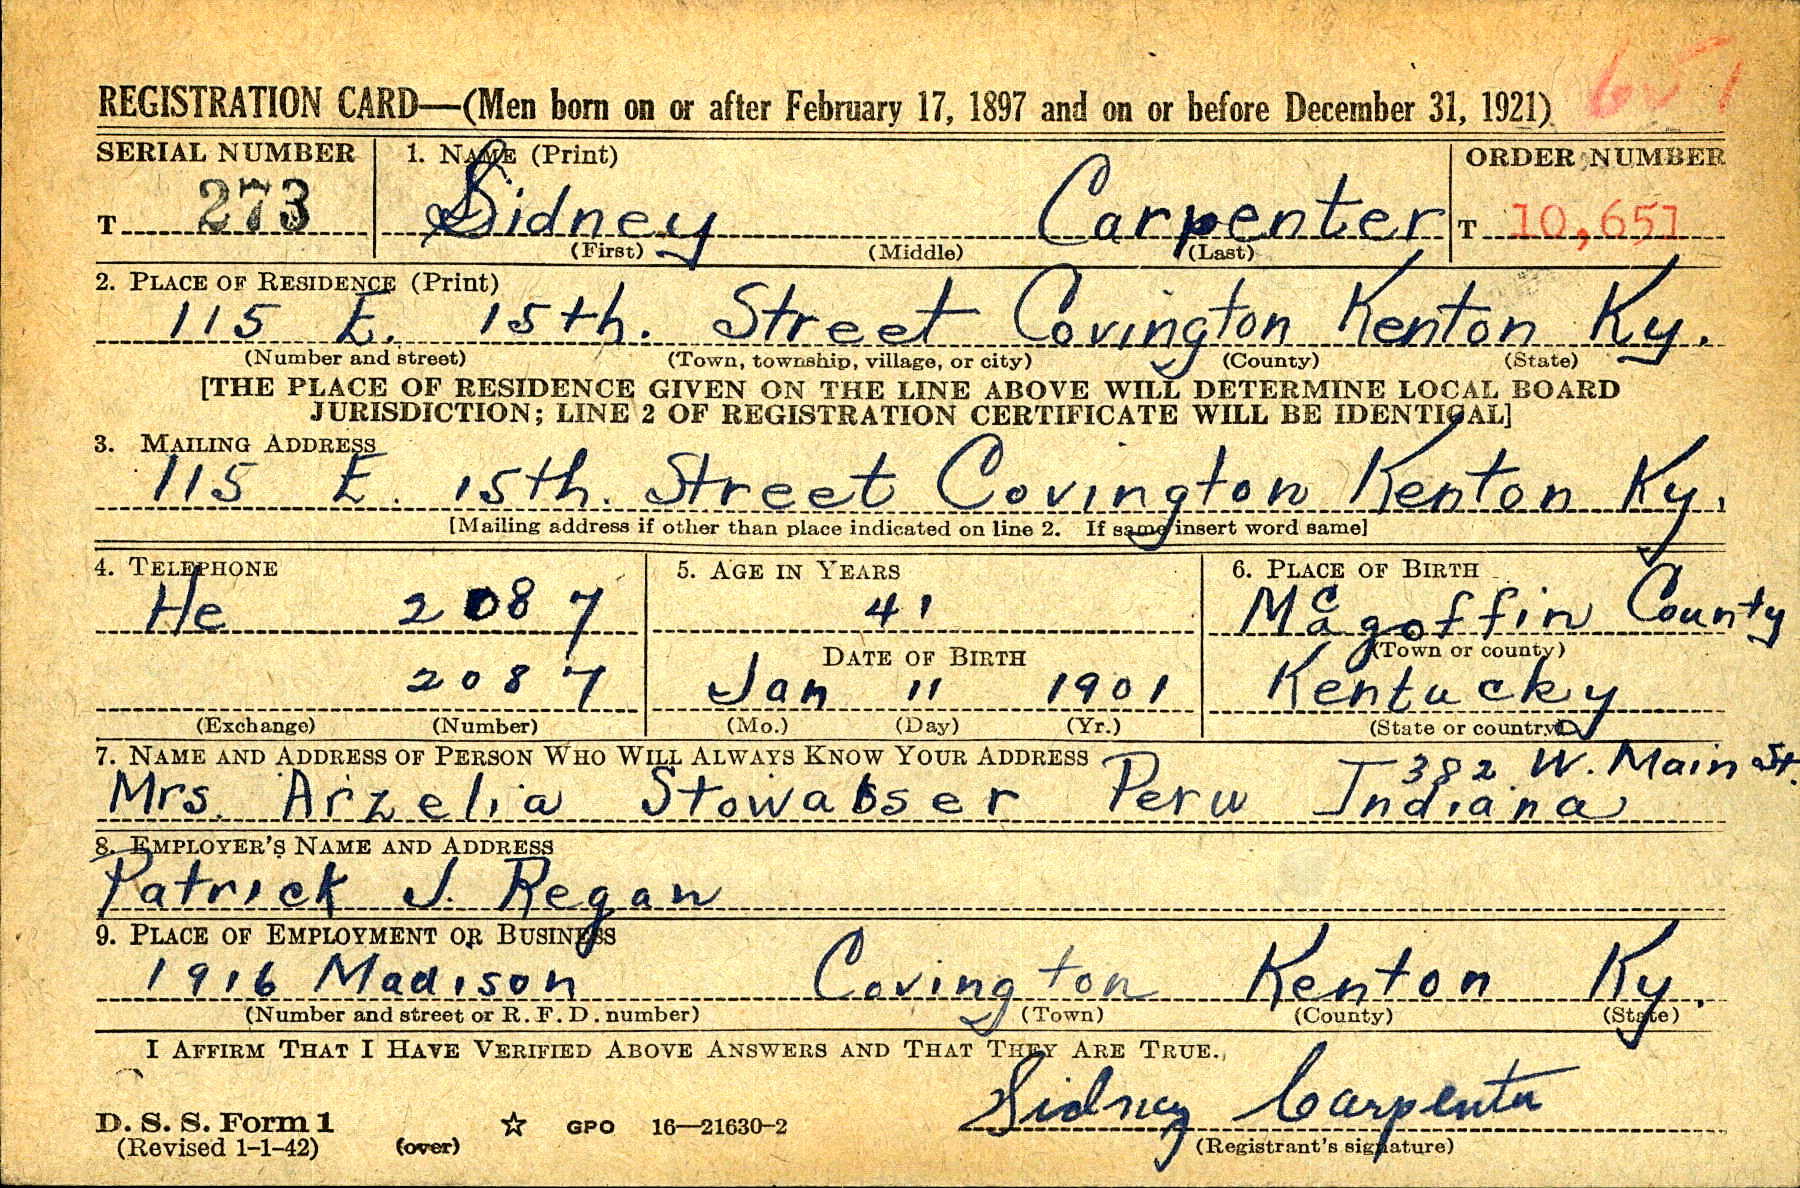 651
REGISTRATION CARD—(Men born on or after February 17, 1897 and on or before December 31, 1921)
SERIAL NUMBER 1. NAME (Print) ORDER NUMBER
T 273 Sidney Carpenter T 10,651
(First) (Middle) (Last)
2. PLACE OF RESIDENCE (Print)
115 E. 15th. Street Covington Kenton Ky.
(Number and street) (Town, township, village, or city) (County) (State)
[THE PLACE OF RESIDENCE GIVEN ON THE LINE ABOVE WILL DETERMINE LOCAL BOARD
JURISDICTION; LINE 2 OF REGISTRATION CERTIFICATE WILL BE IDENTICAL]
3. MAILING ADDRESS
115 E. 15th. Street Covington Kenton Ky.
[Mailing address if other than place indicated on line 2. If same insert word same]
4. TELEPHONE 5. AGE IN YEARS 6. PLACE OF BIRTH
He 2087 41 Magoffin County
DATE OF BIRTH (Town or county)
2087 Jan 11 1901 Kentucky
(Exchange) (Number) (Mo.) (Day) (Yr.) (State or country)
7. NAME AND ADDRESS OF PERSON WHO WILL ALWAYS KNOW YOUR ADDRESS 382 W. Main St.
Mrs. Arzelia Stowasser Peru Indiana
8. EMPLOYER'S NAME AND ADDRESS
Patrick J. Regan
9. PLACE OF EMPLOYMENT OR BUSINESS
1916 Madison Covington Kenton Ky.
(Number and street or R. F. D. number) (Town) (County) (State)
I AFFIRM THAT I HAVE VERIFIED ABOVE ANSWERS AND THAT THEY ARE TRUE.
Sidney Carpenter
D. S. S. Form 1
(Revised 1-1-42) (over) ☆ GPO 16—21630-2 (Registrant's signature)